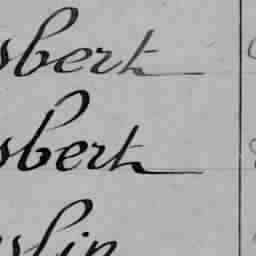 sbert
sbert
slin